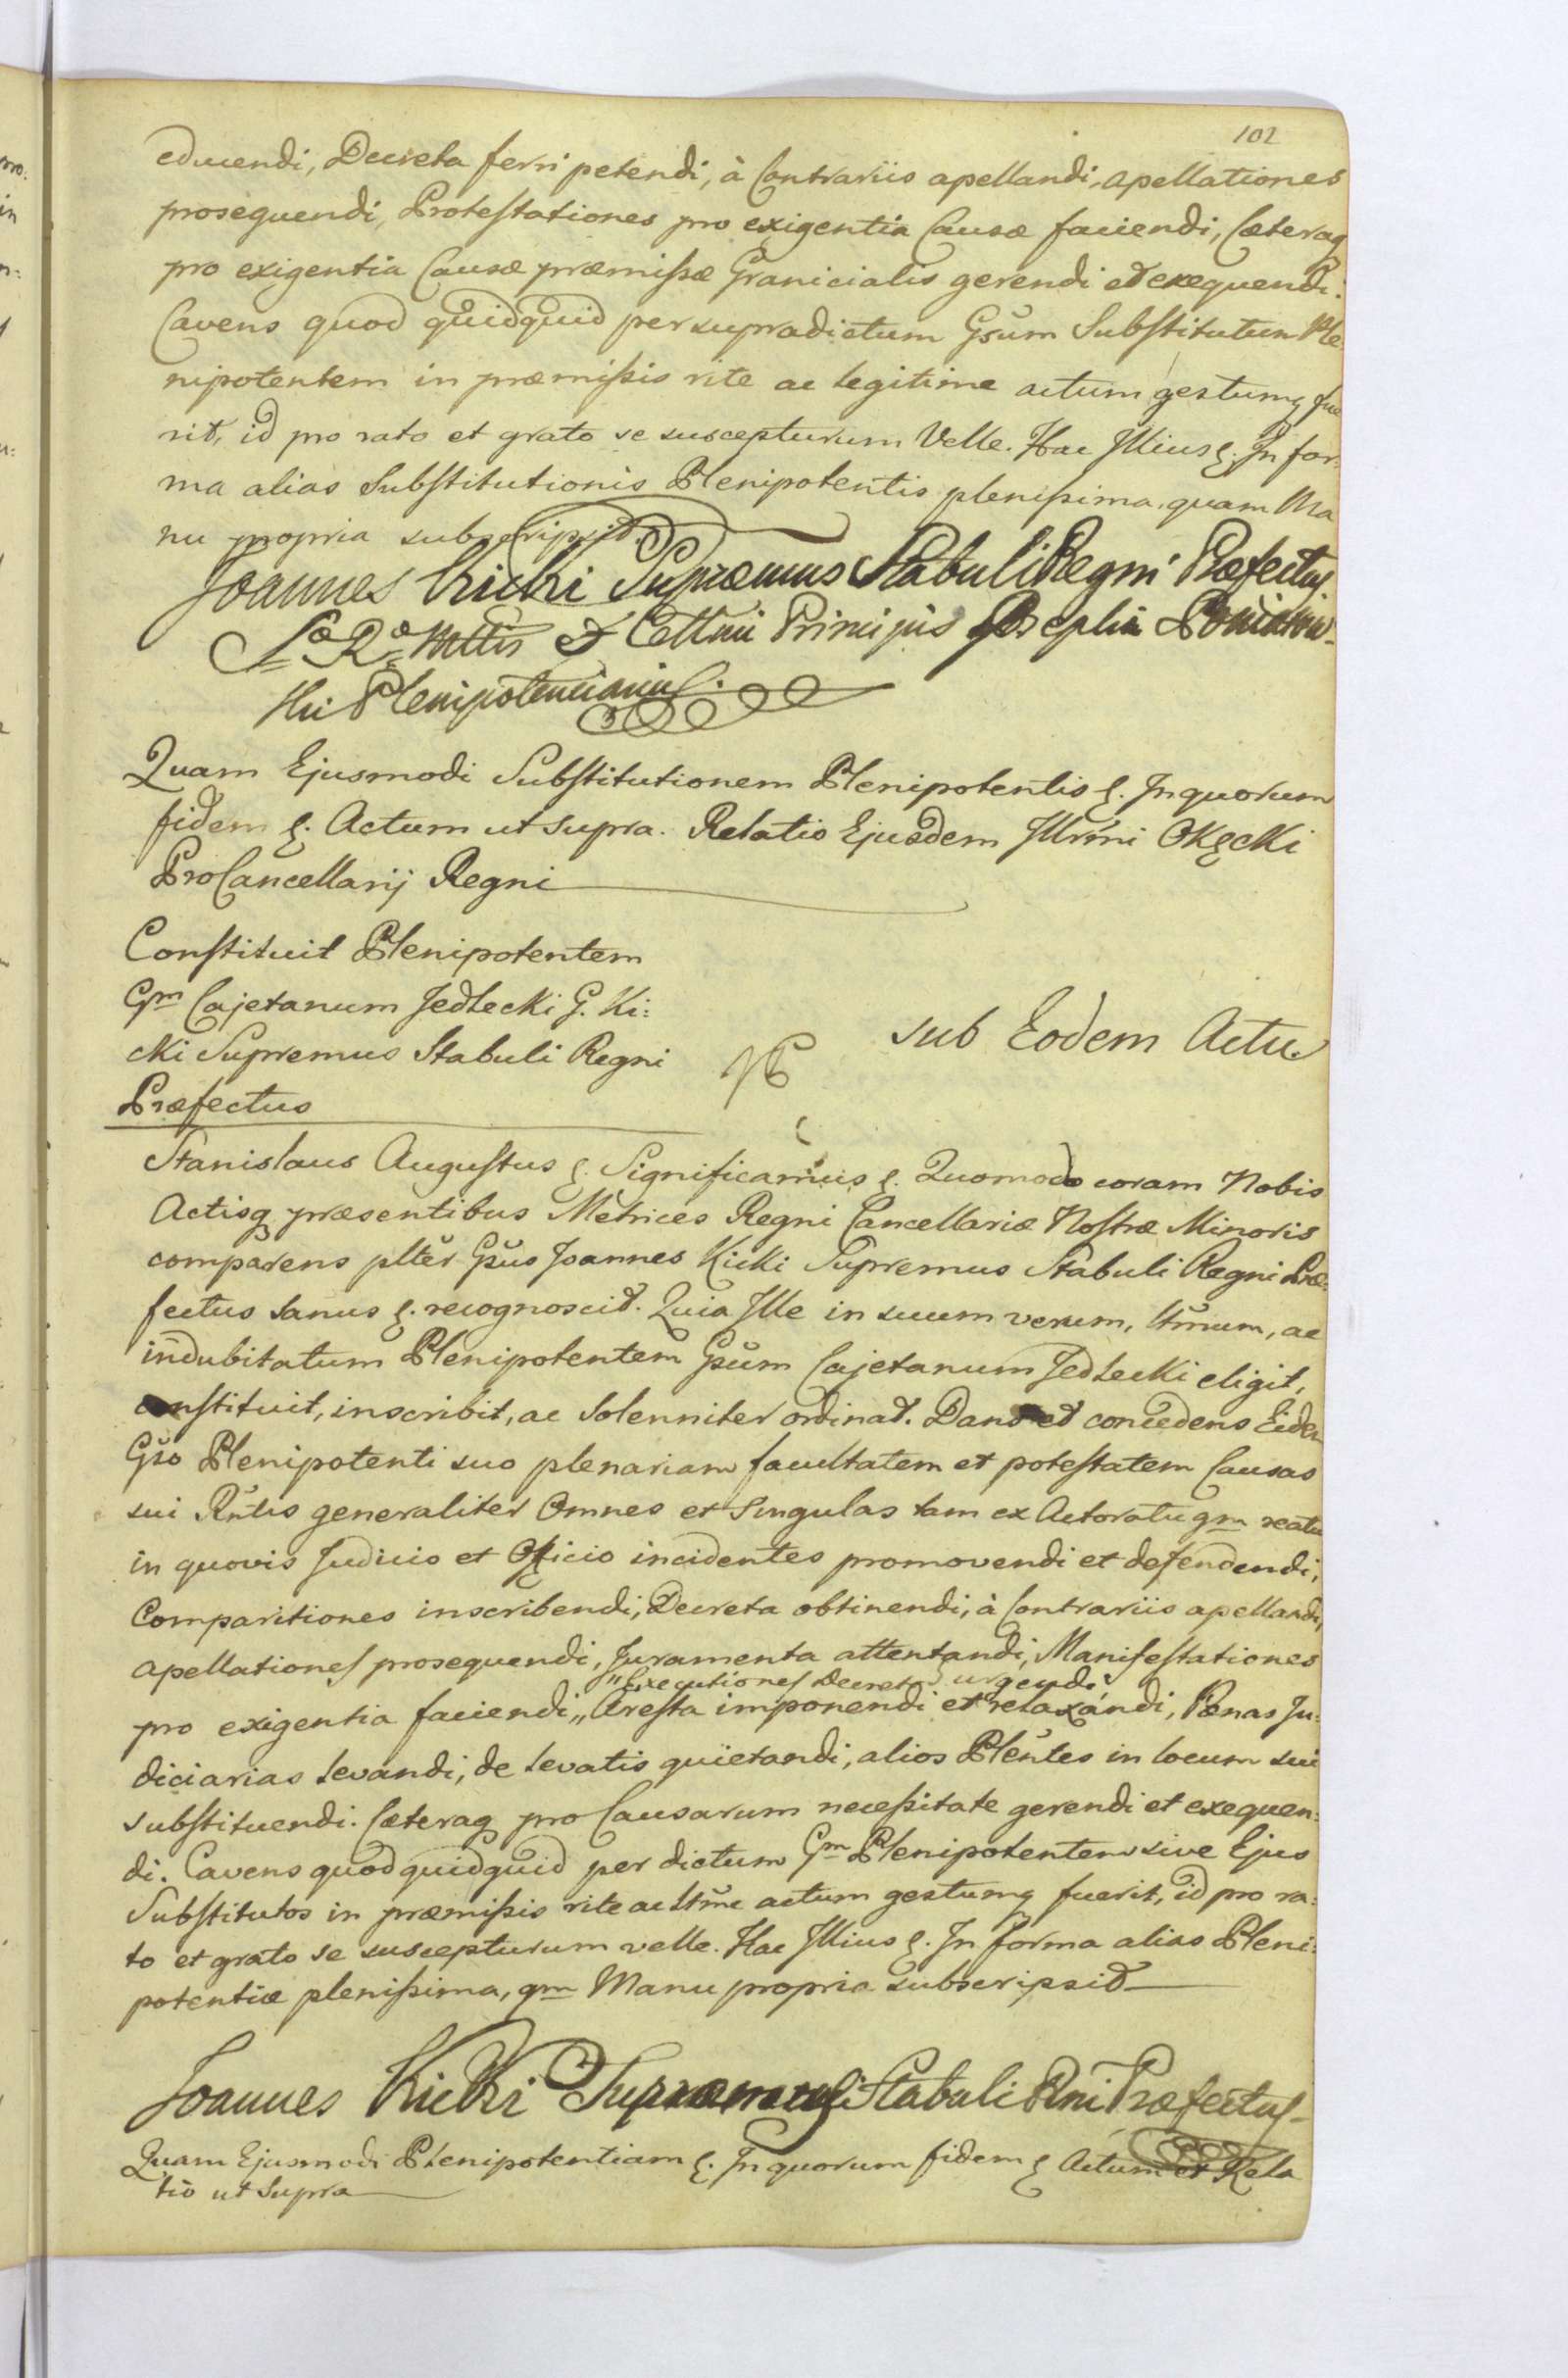 102
educendi, Decreta ferri petendi, à Contrariis apellandi, apellationes
prosequendi, Protestationes pro exigentia Causæ faciendi, Cæteraq
pro exigentia Causæ præmissæ Granicialis gerendi et exequendi.
Cavens quod quidquid per supradictum Gsum Substitutum Ple
nipotentem in præmissis rite ac legitime actum gestumq fue
rit, id pro rato et grato se suscepturum Velle. Hac Illius ę. In for:
ma alias Substitutionis Plenipotentis plenissima, quam Ma
nu propria subscripsit.
Joannes Kicki Supræmus Stabuli Regni Præfectus
Sæ Ræ Mttis & Cettni Principis Josephi Poniatow-
ski Plenipotenciarius.
Quam Ejusmodi Substitutionem Plenipotentis ę. In quorum
fidem ę. Actum ut supra. Relatio Ejusdem Illrmi Okęcki
ProCancellarij Regni
Constituit Plenipotentem
Gm Cajetanum Jedlecki G. Ki:
cki Supremus Stabuli Regni
Præfectus
sub Eodem Actu
Stanislaus Augustus ę. Significamus ę. Quomodo coram Nobis
Actisq præsentibus Metrices Regni Cancellariæ Nostræ Minoris
comparens plter Gsus Joannes Kicki Supremus Stabuli Regni Præ:
fectus Sanus ę. recognoscit. Quia Ille in suum verum, ltmum, ac
indubitatum Plenipotentem Gsum Cajetanum Jedlecki eligit,
constituit, inscribit, ac Solenniter ordinat. Dans et concedens Eidem
Gso Plenipotenti suo plenariam facultatem et potestatem Causas
sui Rntis generaliter Omnes et Singulas tam ex Actoratu qm reatu
in quovis Judicio et Officio incidentes promovendi et defendendi,
Comparitiones inscribendi, Decreta obtinendi, à Contrariis apellandi,
apellationes prosequendi, Juramenta attentandi, Manifestationes
"Executiones Decretor urgendi
pro exigentia faciendi,, Aresta imponendi et relaxandi, Pænas Ju:
diciarias levandi, de levatis quietandi, alios Plentes in locum sui
substituendi. Cæteraq pro Causarum necessitate gerendi et exequen:
di. Cavens quod quidquid per dictum Gm Plenipotentem sive Ejus
Substitutos in præmissis rite ac ltme actum gestumq fuerit, id pro ra:
to et grato se suscepturum velle. Hac Illius ę. In forma alias Pleni:
potentiæ plenissima, qm Manu propria subscripsit
Joannes Kicki Supræmus Stabuli Rni Præfectus-
Quam Ejusmodi Plenipotentiam ę. In quorum fidem ę Actum et Rela
tio ut Supra